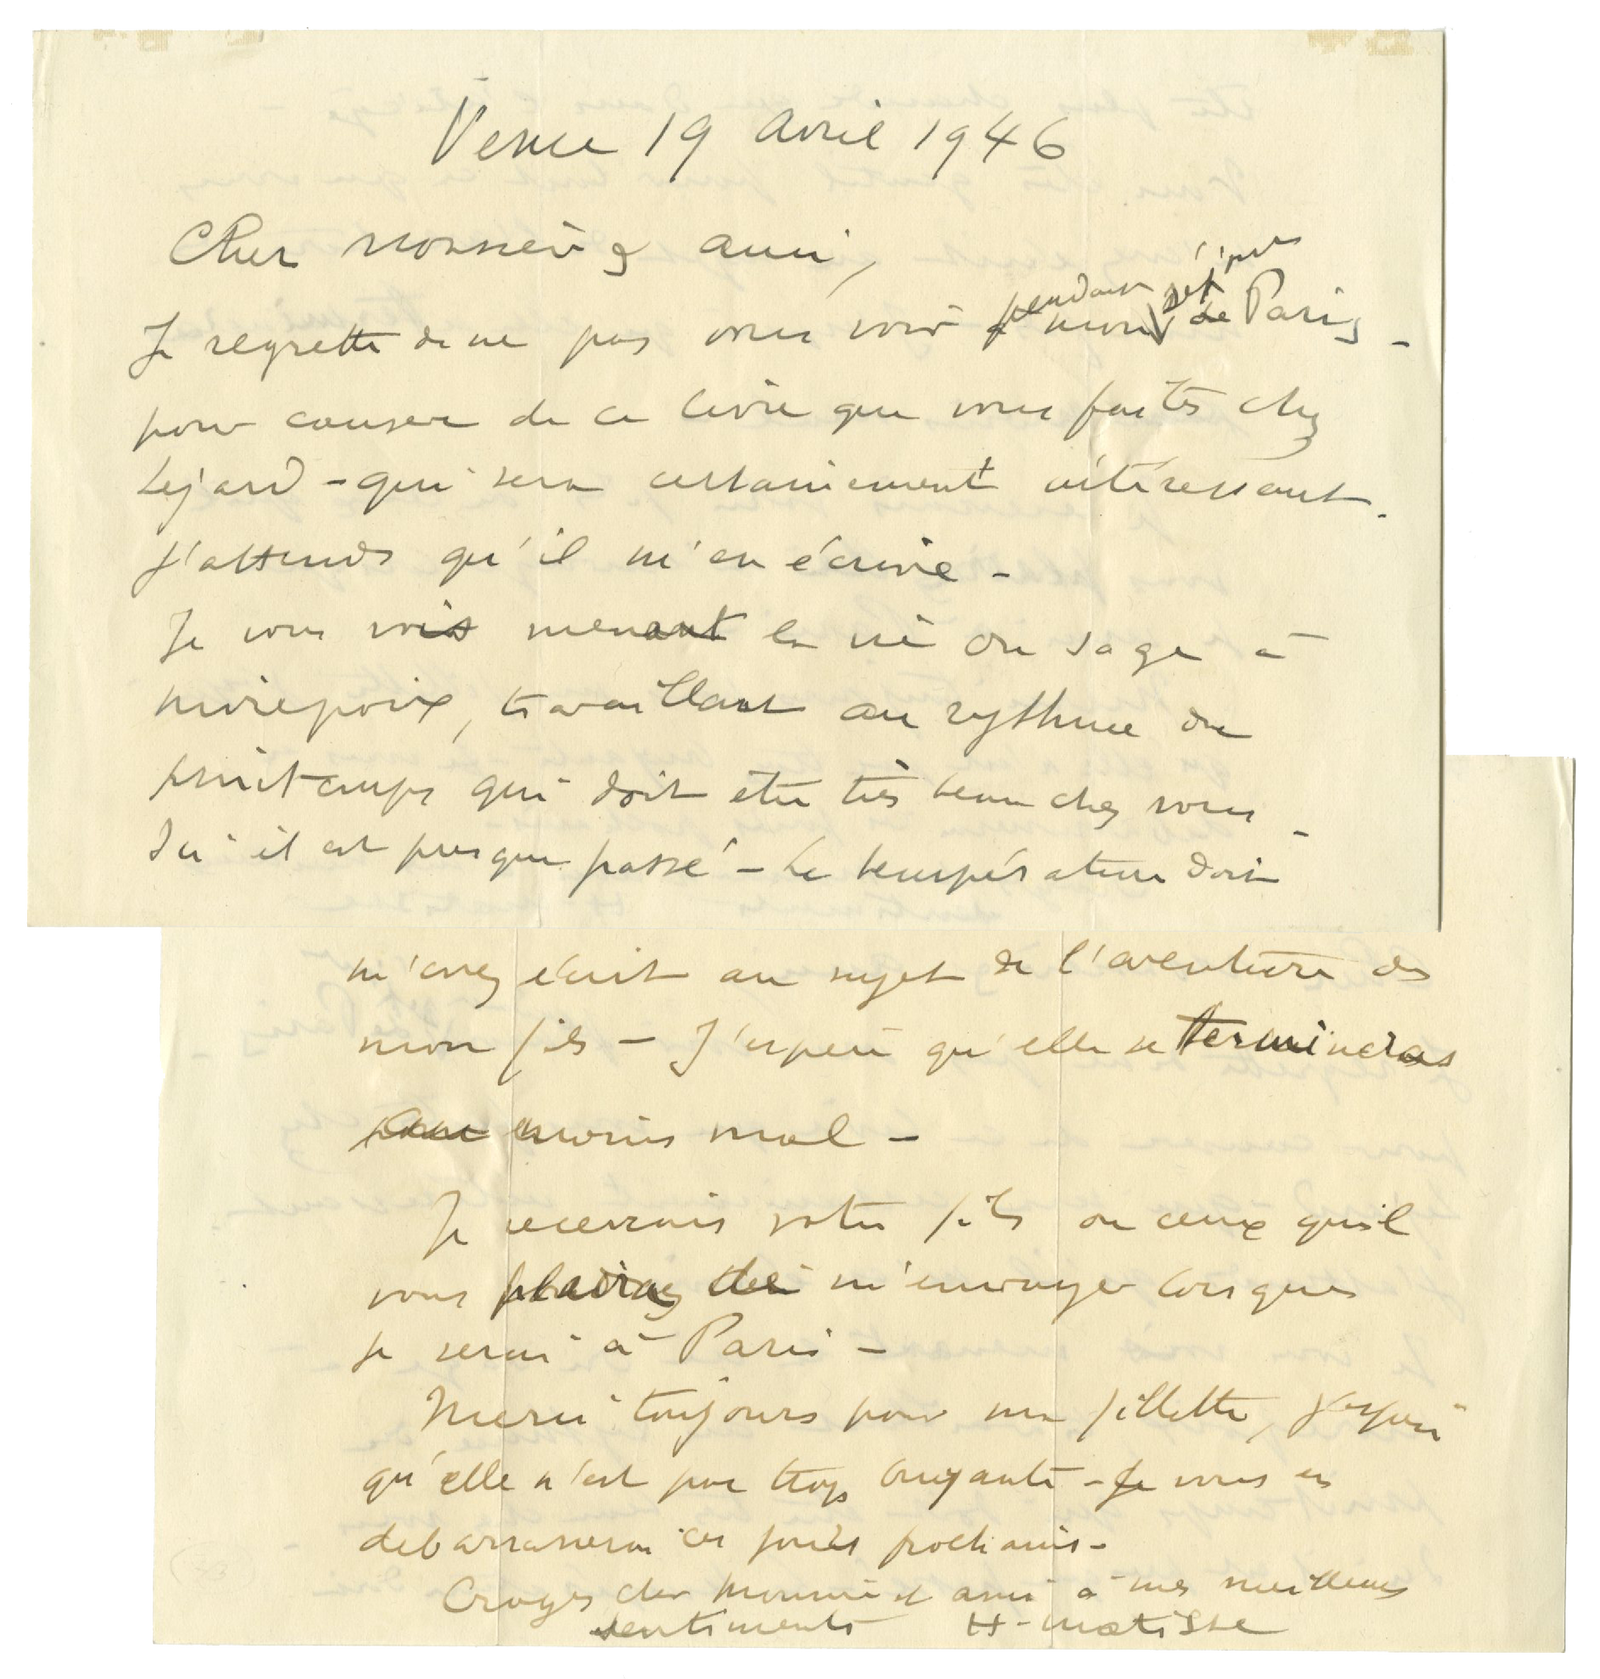 Vence 19 avril 1946
Cher Monsieur & ami,
Je regrette de ne pas vous voir pendant mon séjour de Paris –
pour causer de ce livre que vous faites chez
Lejard – qui sera certainement intéressant.
J'attends qu'il m'en écrive –
Je vous vois menant la vie du sage à
Mirepoix, travaillant au rythme du
printemps qui doit être très beau chez vous –
Ici il est presque passé – La température doit
m'avez écrit au sujet de l'aventure de
mon fils – J'espère qu'elle se terminera
au moins mal –
Je recevrais votre fils ou ceux qu'il
vous plaira de m'envoyer lorsque
je serai à Paris –
Merci toujours pour ma fillette, j'espère
qu'elle n'est pas trop bruyante – Je vous en
debarrasserai ces jours prochains –
Croyez cher Monsieur et ami à mes meilleurs
sentiments H. Matisse